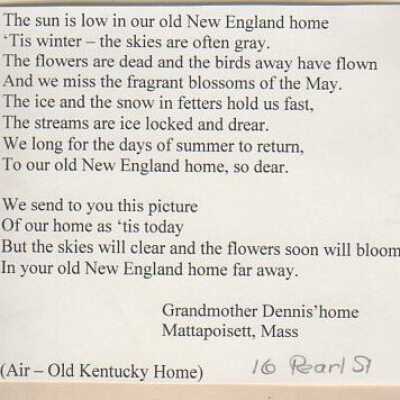 The sun is low in our old New England home
‘Tis winter – the skies are often gray.
The flowers are dead and the birds away have flown
And we miss the fragrant blossoms of the May.
The ice and the snow in fetters hold us fast,
The streams are ice locked and drear.
We long for the days of summer to return,
To our old New England home, so dear.

We send to you this picture
Of our home as ‘tis today
But the skies will clear and the flowers soon will bloom
In your old New England home far away.

Grandmother Dennis’home
Mattapoisett, Mass
(Air – Old Kentucky Home) 16 Pearl St